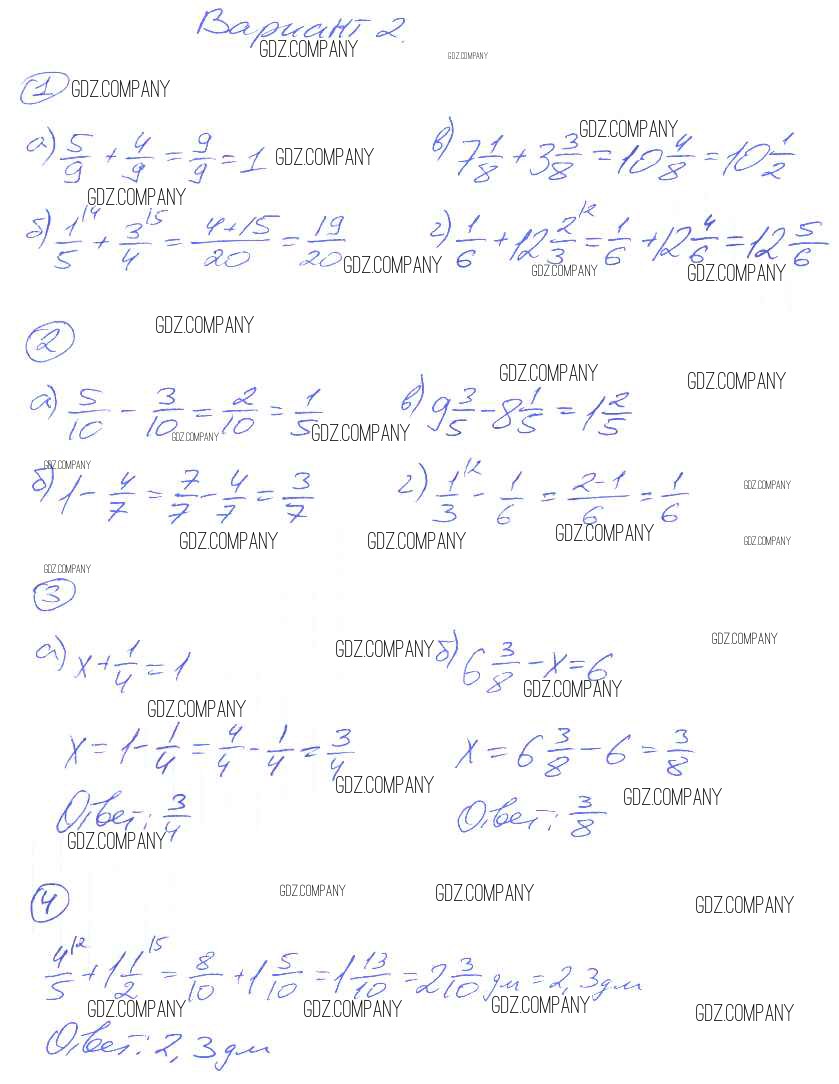 Вариант 2.
GDZ.COMPANY GDZ.COMPANY
1 GDZ.COMPANY
GDZ.COMPANY
а) 5/9 + 4/9 = 9/9 = 1 GDZ.COMPANY в) 7 1/8 + 3 3/8 = 10 4/8 = 10 1/2
GDZ.COMPANY
б) 1/5 |4 + 3/4 |5 = (4+15)/20 = 19/20 г) 1/6 + 12 2/3 |2 = 1/6 + 12 4/6 = 12 5/6
GDZ.COMPANY GDZ.COMPANY GDZ.COMPANY
2 GDZ.COMPANY
GDZ.COMPANY GDZ.COMPANY
а) 5/10 - 3/10 = 2/10 = 1/5 в) 9 3/5 - 8 1/5 = 1 2/5
GDZ.COMPANY GDZ.COMPANY
GDZ.COMPANY
б) 1 - 4/7 = 7/7 - 4/7 = 3/7 г) 1/3 |2 - 1/6 = (2-1)/6 = 1/6 GDZ.COMPANY
GDZ.COMPANY GDZ.COMPANY GDZ.COMPANY GDZ.COMPANY
GDZ.COMPANY
3
а) x + 1/4 = 1 GDZ.COMPANY б) 6 3/8 - x = 6 GDZ.COMPANY
GDZ.COMPANY
GDZ.COMPANY
x = 1 - 1/4 = 4/4 - 1/4 = 3/4 x = 6 3/8 - 6 = 3/8
GDZ.COMPANY GDZ.COMPANY
Ответ: 3/4 Ответ: 3/8
GDZ.COMPANY
4 GDZ.COMPANY GDZ.COMPANY GDZ.COMPANY
4/5 |2 + 1 1/2 |5 = 8/10 + 1 5/10 = 1 13/10 = 2 3/10 дм = 2,3 дм
GDZ.COMPANY GDZ.COMPANY GDZ.COMPANY GDZ.COMPANY
Ответ: 2,3 дм